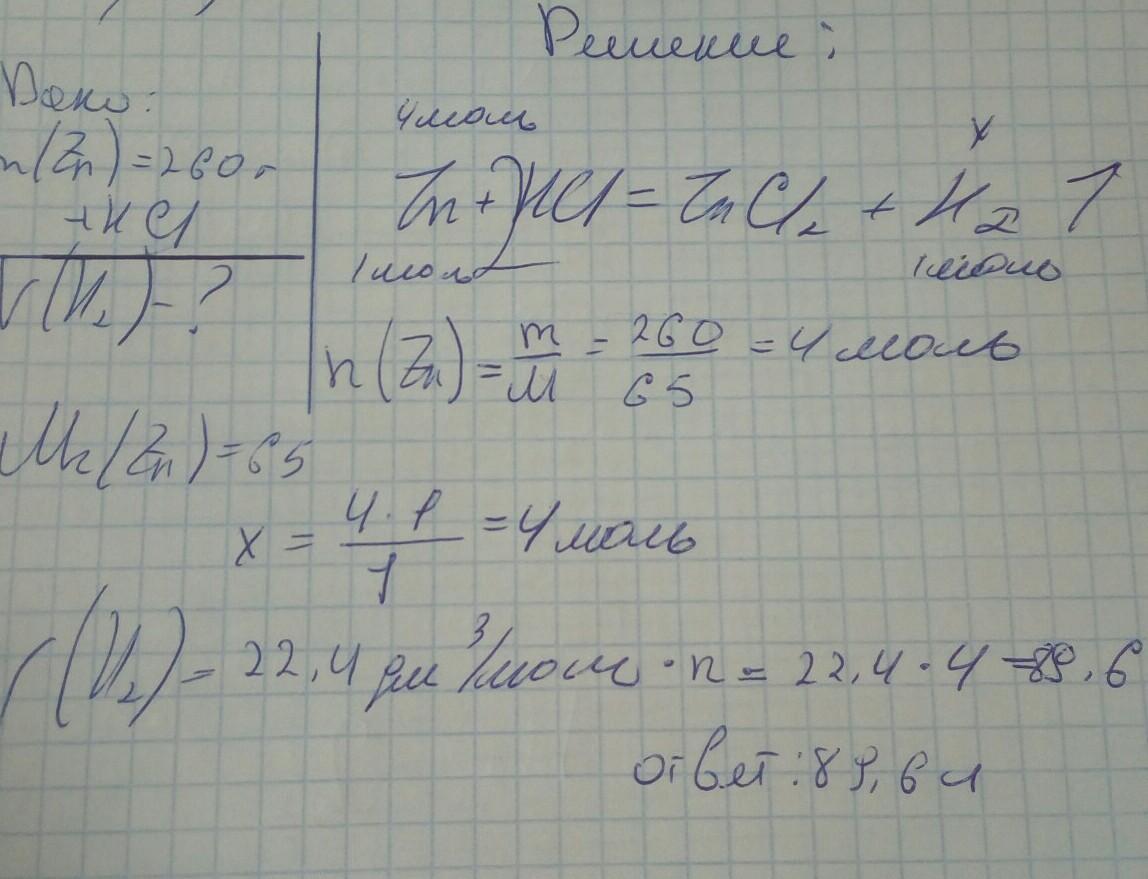 Решение:
Дано:
m(Zn)=260г
+HCl
V(H₂)-?
4 моль
x
Zn+2HCl=ZnCl₂+H₂↑
1 моль
1 моль
n(Zn)=m/M=260/65=4 моль
Mr(Zn)=65
x=4·1/1=4 моль
V(H₂)=22,4 дм³/моль·n=22,4·4=89,6
ответ:89,6 л